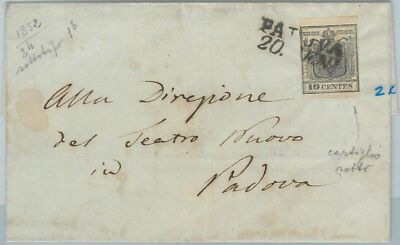 1852
2h
sottotipo 1B
PA
20.
10 CENTES
2h
Alla Direzione
del Teatro Nuovo
in
Padova
cartiglio
rotto